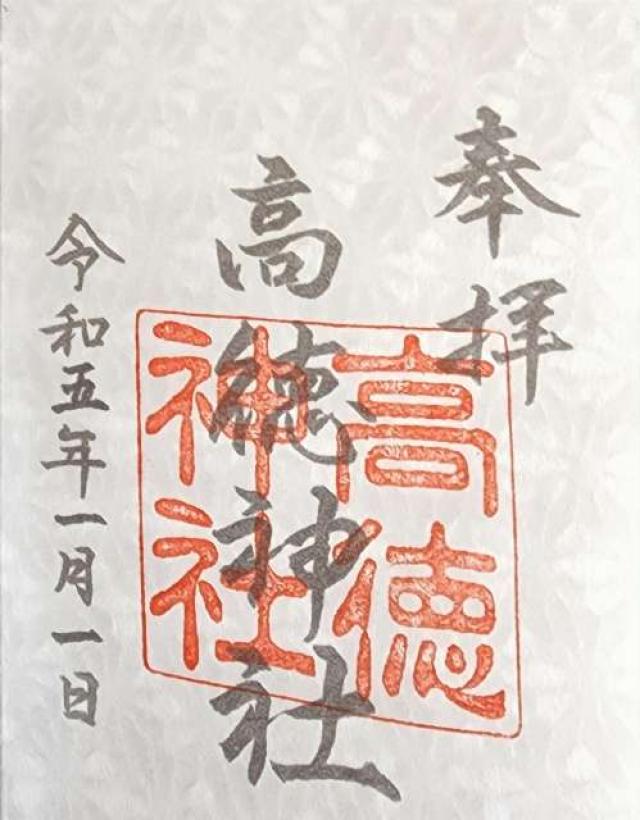 奉拝
高徳神社
高徳
神社
令和五年一月一日